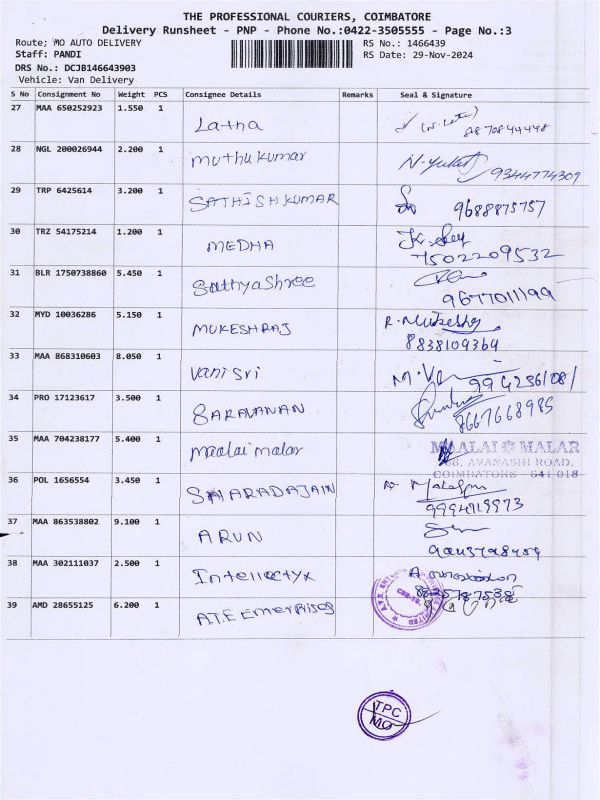 THE PROFESSIONAL COURIERS, COIMBATORE
Delivery Runsheet - PNP - Phone No.:0422-3505555 - Page No.:3
Route; MO AUTO DELIVERY
RS No.: 1466439
Staff: PANDI
RS Date: 29-Nov-2024
DRS No.: DCJB146643903
Vehicle: Van Delivery
S No Consignment No Weight PCS Consignee Details Remarks Seal & Signature
27 MAA 650252923 1.550 1 Latha
28 NGL 200026944 2.200 1 muthukumar 9344774309
29 TRP 6425614 3.200 1 SATHISHKUMAR 9688875757
30 TRZ 54175214 1.200 1 MEDHA 7502209532
31 BLR 1750738860 5.450 1 SathyaShree 9677011199
32 MYD 10036286 5.150 1 MUKESHRAJ R. Mukesh
8838109364
33 MAA 868310603 8.050 1 Vani sri
34 PRO 17123617 3.500 1 SARAVANAN 8667668985
35 MAA 704238177 5.400 1 maalai malar MAALAI MALAR
AVANASHI ROAD,
COIMBATORE - 641 018
36 POL 1656554 3.450 1 SHARADAJAIN
9994719973
37 MAA 863538802 9.100 1 ARUN
38 MAA 302111037 2.500 1 Intellectyx
39 AMD 28655125 6.200 1 A.T.E Enterprises
TPC
MO